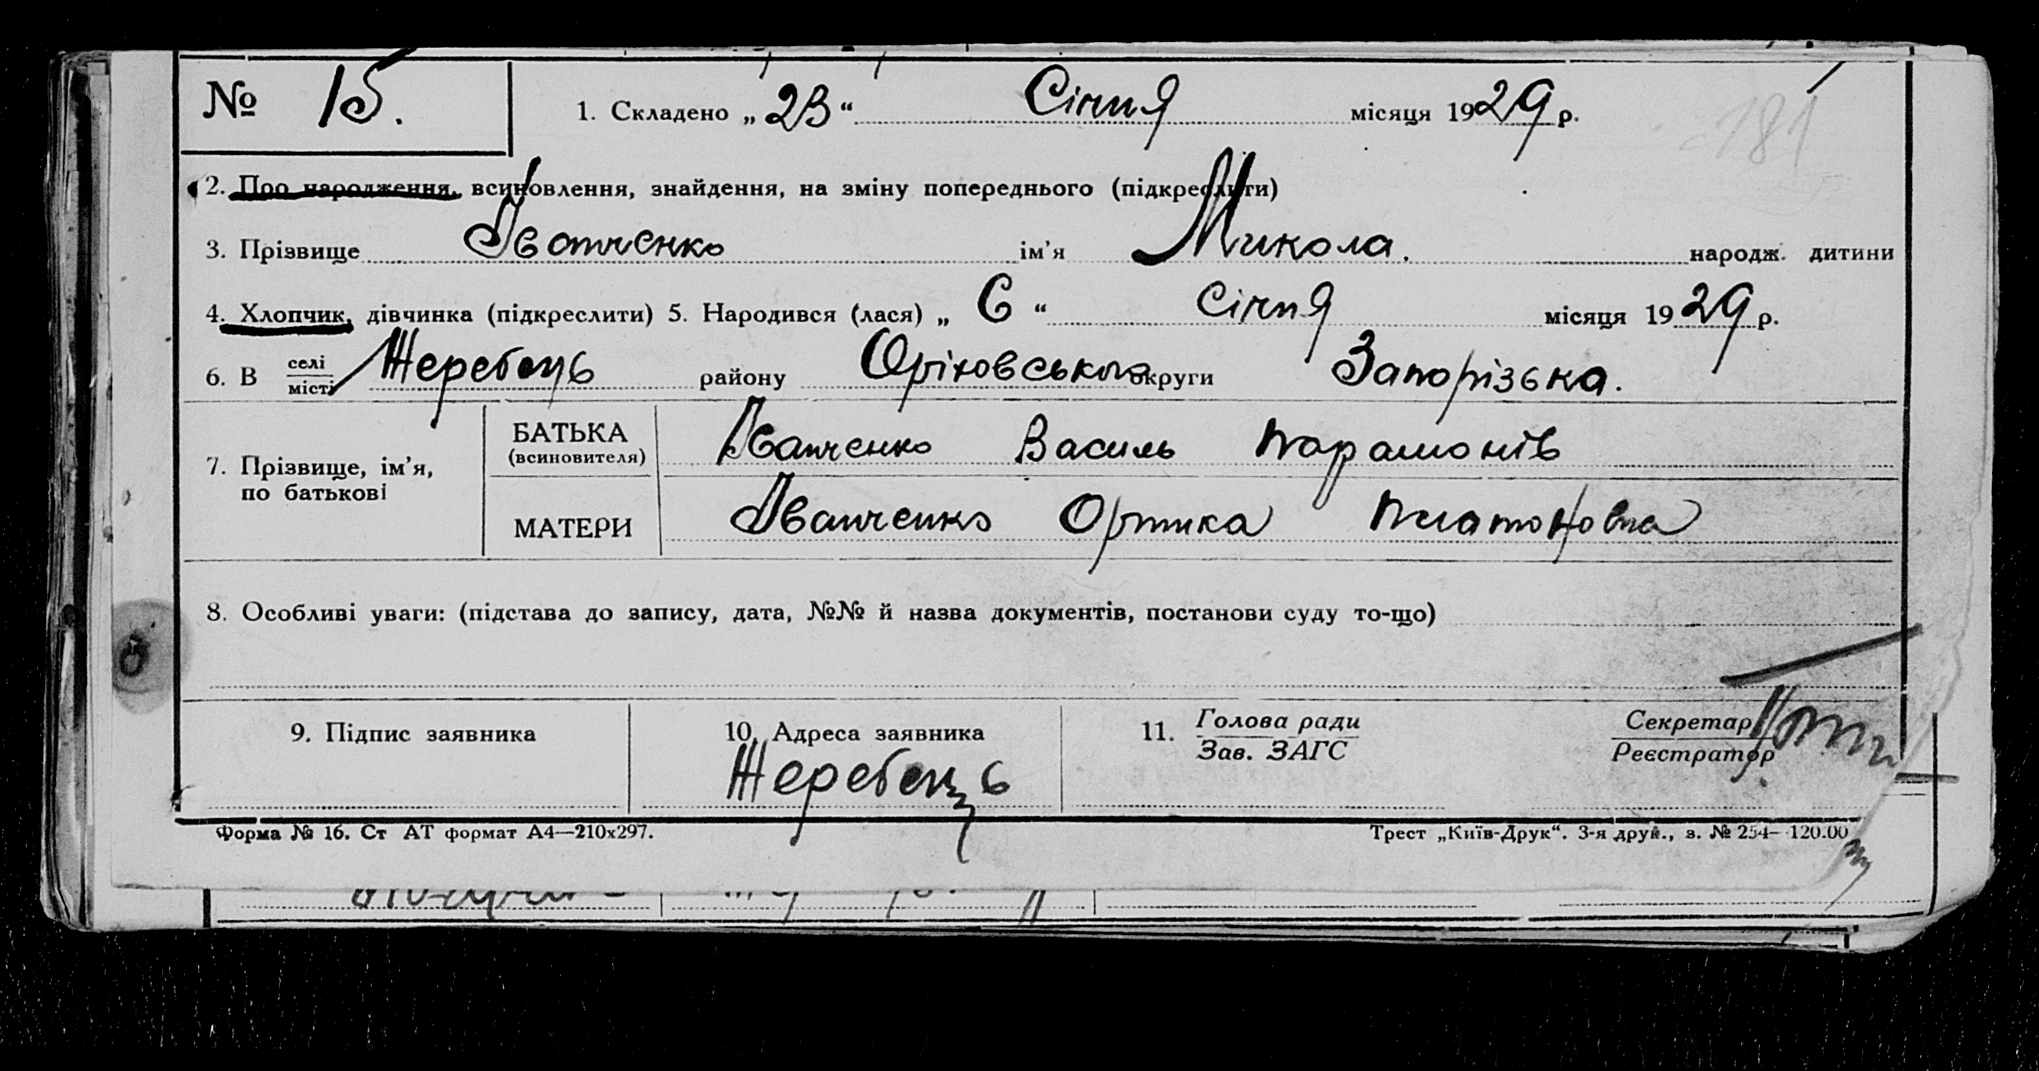 № 15. 1. Складено „23“ Січня місяця 1929 р.
181
2. Про народження, всиновлення, знайдення, на зміну попереднього (підкреслити)
3. Прізвище Іванченко ім’я Микола. народж. дитини
4. Хлопчик, дівчинка (підкреслити) 5. Народився (лася) „6“ січня місяця 1929 р.
6. В селі/місті Жеребець району Оріховського округи Запорізька.
7. Прізвище, ім’я, по батькові
БАТЬКА (всиновителя) Іванченко Василь Парамонів
МАТЕРИ Іванченко Орпика Платоновна
8. Особливі уваги: (підстава до запису, дата, №№ й назва документів, постанови суду то-що)
9. Підпис заявника 10. Адреса заявника 11. Голова ради/Зав. ЗАГС Секретар/Реєстратор
Жеребець
Форма № 16. Ст АТ формат А4—210х297. Трест „Київ-Друк“. 3-я друк., з. № 254— 120.00